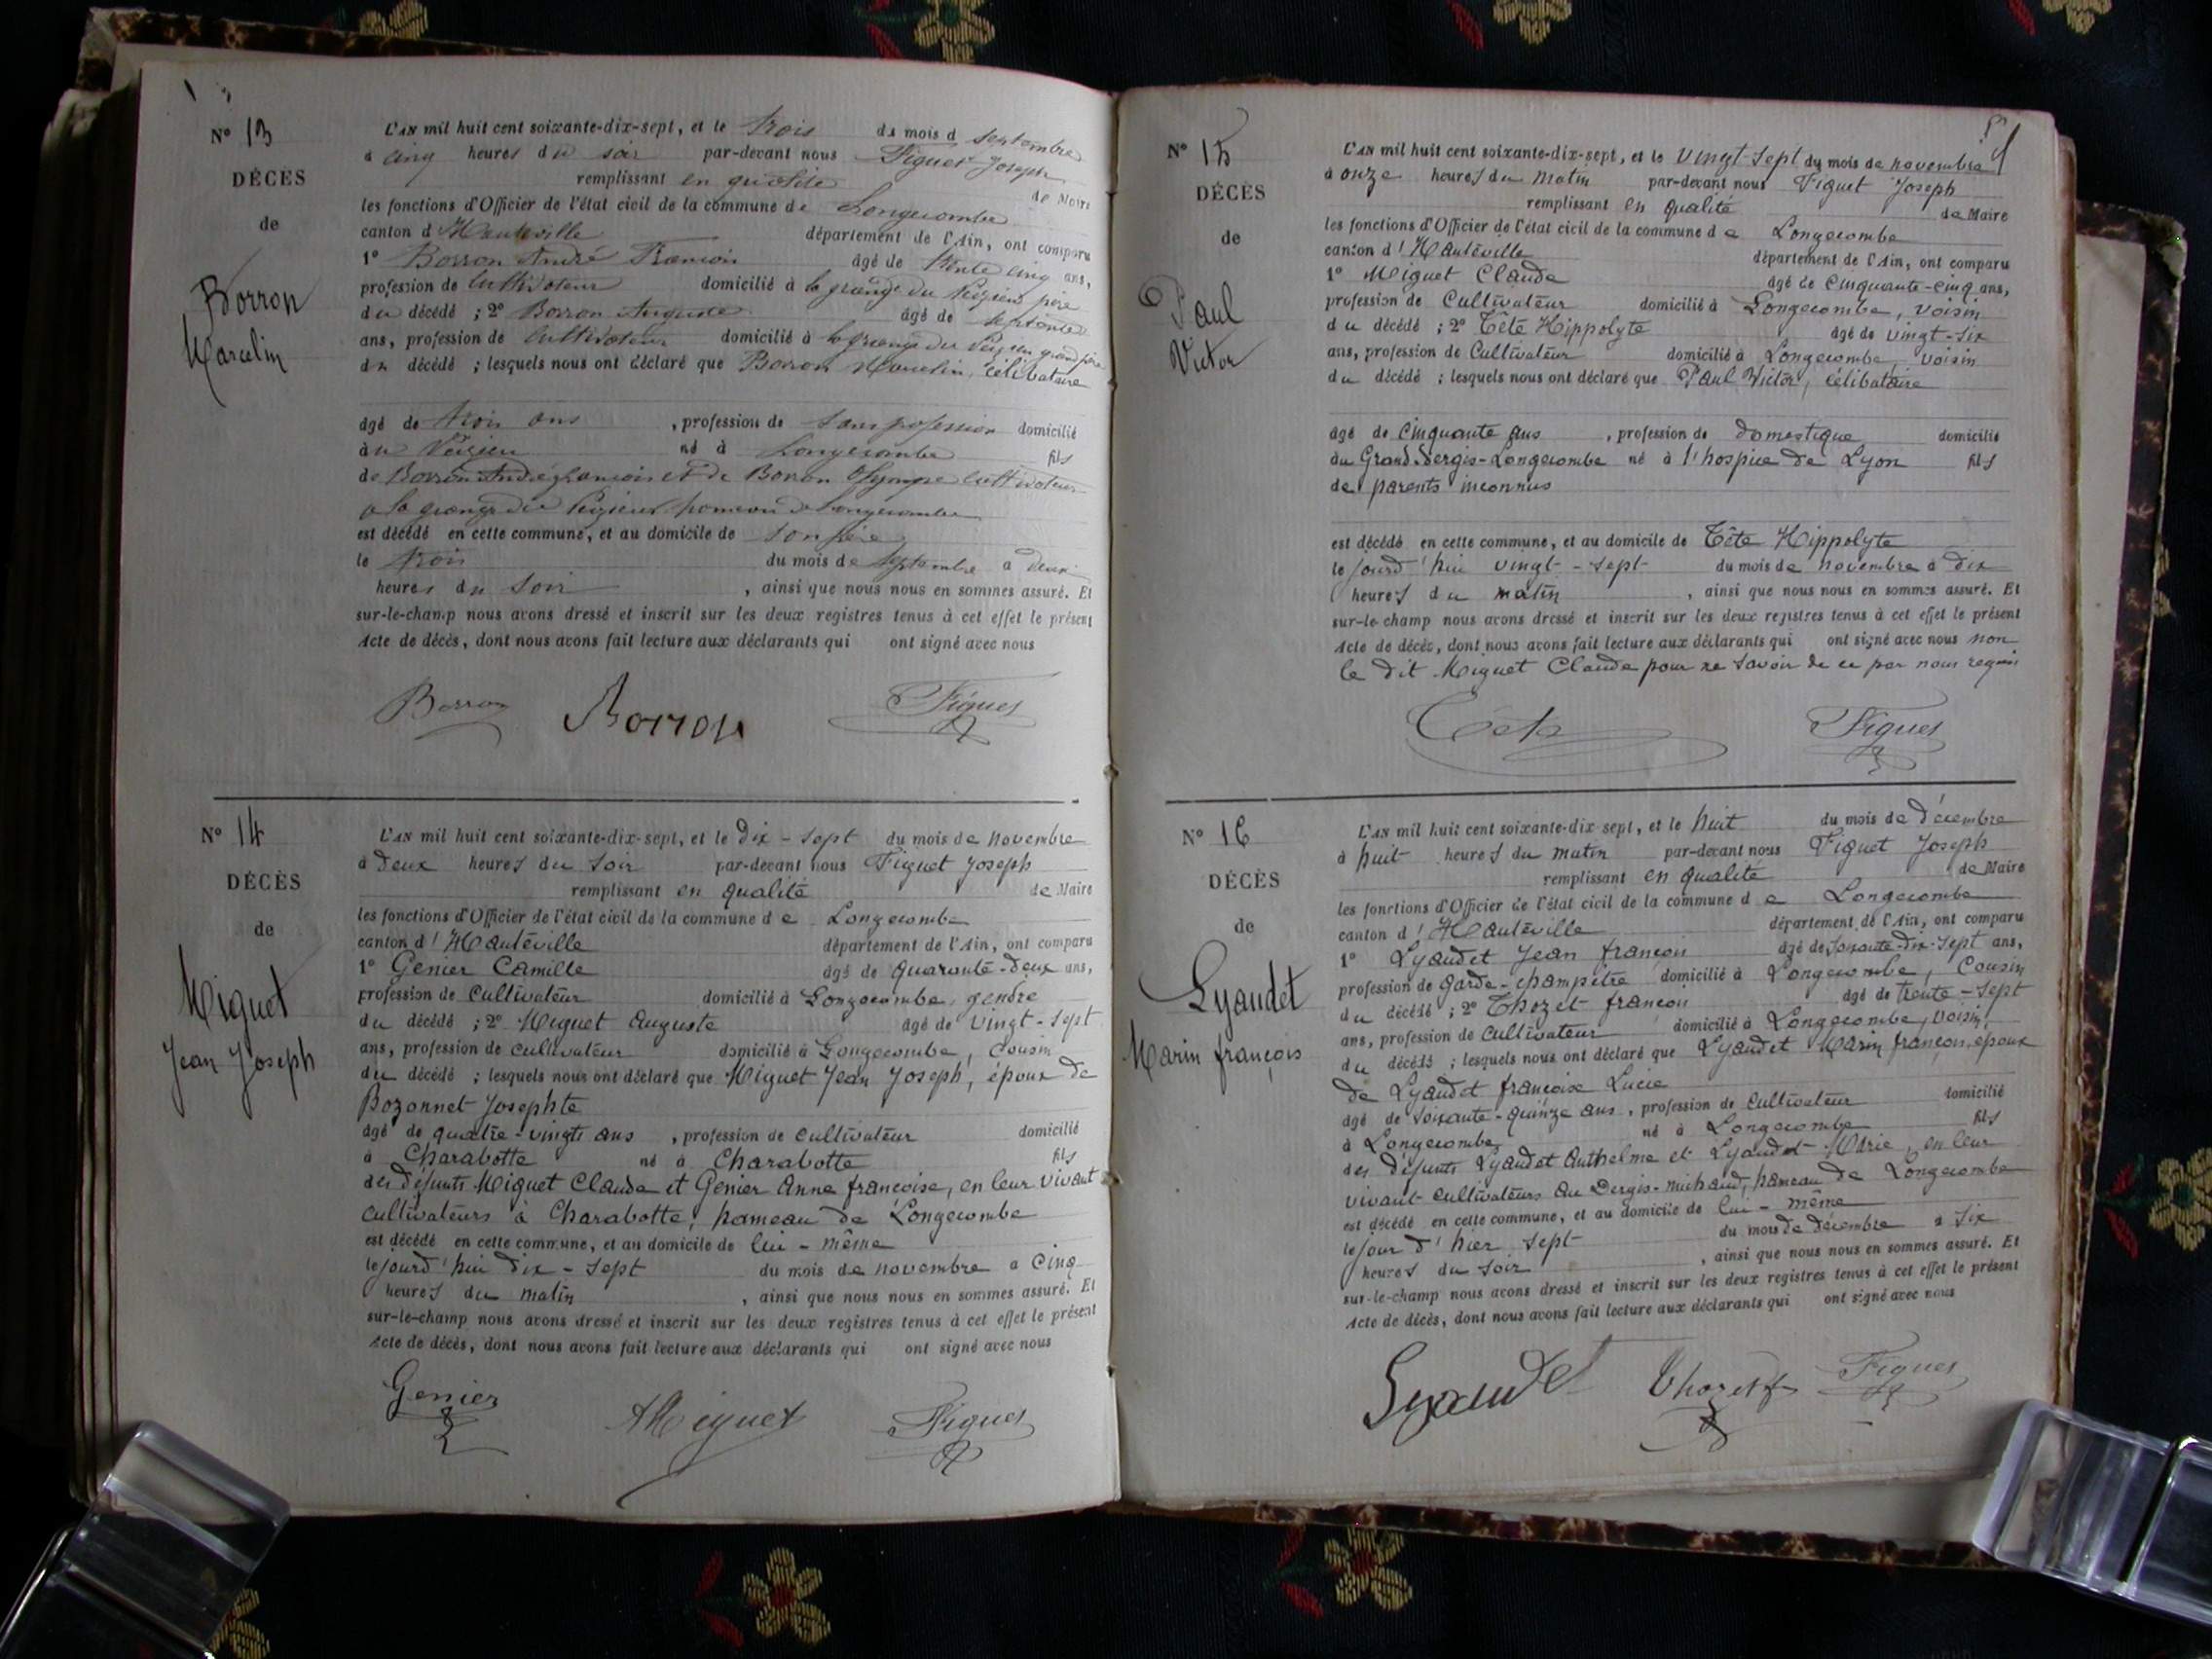 Nº 13
DÉCÈS
de
Borron
Marcelin
L'AN mil huit cent soixante-dix-sept, et le trois du mois d septembre
à cinq heures du soir par-devant nous Figuet Joseph
remplissant en qualité de Maire
les fonctions d'Officier de l'état civil de la commune de Longecombe
canton d'Hauteville département de l'Ain, ont comparu
1º Borron André François âgé de trente cinq ans,
profession de Cultivateur domicilié à la grange du père
du décédé ; 2º Borron Auguste âgé de septante
ans, profession de Cultivateur domicilié à la grange du grand père
du décédé ; lesquels nous ont déclaré que Borron Marcelin, célibataire
âgé de trois ans , profession de sans profession domicilié
au né à Longecombe fils
de Borron André françois et de Borron Olympe Cultivateurs
à la grange du hameau de Longecombe
est décédé en cette commune, et au domicile de son père
le trois du mois de septembre à deux
heures du soir , ainsi que nous nous en sommes assuré. Et
sur-le-champ nous avons dressé et inscrit sur les deux registres tenus à cet effet le présent
Acte de décès, dont nous avons fait lecture aux déclarants qui ont signé avec nous
Borron Borron Figuet
Nº 14
DÉCÈS
de
Miguet
Jean Joseph
L'AN mil huit cent soixante-dix-sept, et le dix-sept du mois de novembre
à deux heures du soir par-devant nous Figuet Joseph
remplissant en qualité de Maire
les fonctions d'Officier de l'état civil de la commune de Longecombe
canton d'Hauteville département de l'Ain, ont comparu
1º Genier Camille âgé de quarante-deux ans,
profession de Cultivateur domicilié à Longecombe, gendre
du décédé ; 2º Miguet Auguste âgé de vingt-sept
ans, profession de cultivateur domicilié à Longecombe, Cousin
du décédé ; lesquels nous ont déclaré que Miguet Jean Joseph, époux de
Bozonnet Josephte
âgé de quatre-vingts ans , profession de cultivateur domicilié
à Charabotte né à Charabotte fils
des défunts Miguet Claude et Genier Anne françoise, en leur vivant
cultivateurs à Charabotte, hameau de Longecombe
est décédé en cette commune, et au domicile de lui-même
le jourd'hui dix-sept du mois de novembre à cinq
heures du matin , ainsi que nous nous en sommes assuré. Et
sur-le-champ nous avons dressé et inscrit sur les deux registres tenus à cet effet le présent
Acte de décès, dont nous avons fait lecture aux déclarants qui ont signé avec nous
Genier AMiguet Figuet
Nº 15
DÉCÈS
de
Paul
Victor
L'AN mil huit cent soixante-dix-sept, et le vingt-sept du mois de novembre
à onze heures du matin par-devant nous Figuet Joseph
remplissant en qualité de Maire
les fonctions d'Officier de l'état civil de la commune de Longecombe
canton d'Hauteville département de l'Ain, ont comparu
1º Miguet Claude âgé de cinquante-cinq ans,
profession de Cultivateur domicilié à Longecombe, voisin
du décédé ; 2º Tête Hippolyte âgé de vingt-six
ans, profession de Cultivateur domicilié à Longecombe, voisin
du décédé ; lesquels nous ont déclaré que Paul Victor, célibataire
âgé de cinquante ans , profession de domestique domicilié
au Grand-Dergis-Longecombe né à l'hospice de Lyon fils
de parents inconnus
est décédé en cette commune, et au domicile de Tête Hippolyte
le jourd'hui vingt-sept du mois de novembre à dix
heures du matin , ainsi que nous nous en sommes assuré. Et
sur-le-champ nous avons dressé et inscrit sur les deux registres tenus à cet effet le présent
Acte de décès, dont nous avons fait lecture aux déclarants qui ont signé avec nous non
le dit Miguet Claude pour ne savoir de ce par nous requis
Tête Figuet
Nº 16
DÉCÈS
de
Lyaudet
Marin françois
L'AN mil huit cent soixante-dix-sept, et le huit du mois de décembre
à huit heures du matin par-devant nous Figuet Joseph
remplissant en qualité de Maire
les fonctions d'Officier de l'état civil de la commune de Longecombe
canton d'Hauteville département de l'Ain, ont comparu
1º Lyaudet Jean françois âgé de soixante-dix-sept ans,
profession de garde-champêtre domicilié à Longecombe, Cousin
du décédé ; 2º Thozet françois âgé de trente-sept
ans, profession de cultivateur domicilié à Longecombe, voisin
du décédé ; lesquels nous ont déclaré que Lyaudet Marin françois, époux
de Lyaudet françoise Lucie
âgé de soixante-quinze ans , profession de Cultivateur domicilié
à Longecombe né à Longecombe fils
des défunts Lyaudet Anthelme et Lyaudet Marie, en leur
vivant cultivateurs au Dergis-michaud, hameau de Longecombe
est décédé en cette commune, et au domicile de lui-même
le jour d'hier sept du mois de décembre à six
heures du soir , ainsi que nous nous en sommes assuré. Et
sur-le-champ nous avons dressé et inscrit sur les deux registres tenus à cet effet le présent
Acte de décès, dont nous avons fait lecture aux déclarants qui ont signé avec nous
Lyaudet Thozet f Figuet